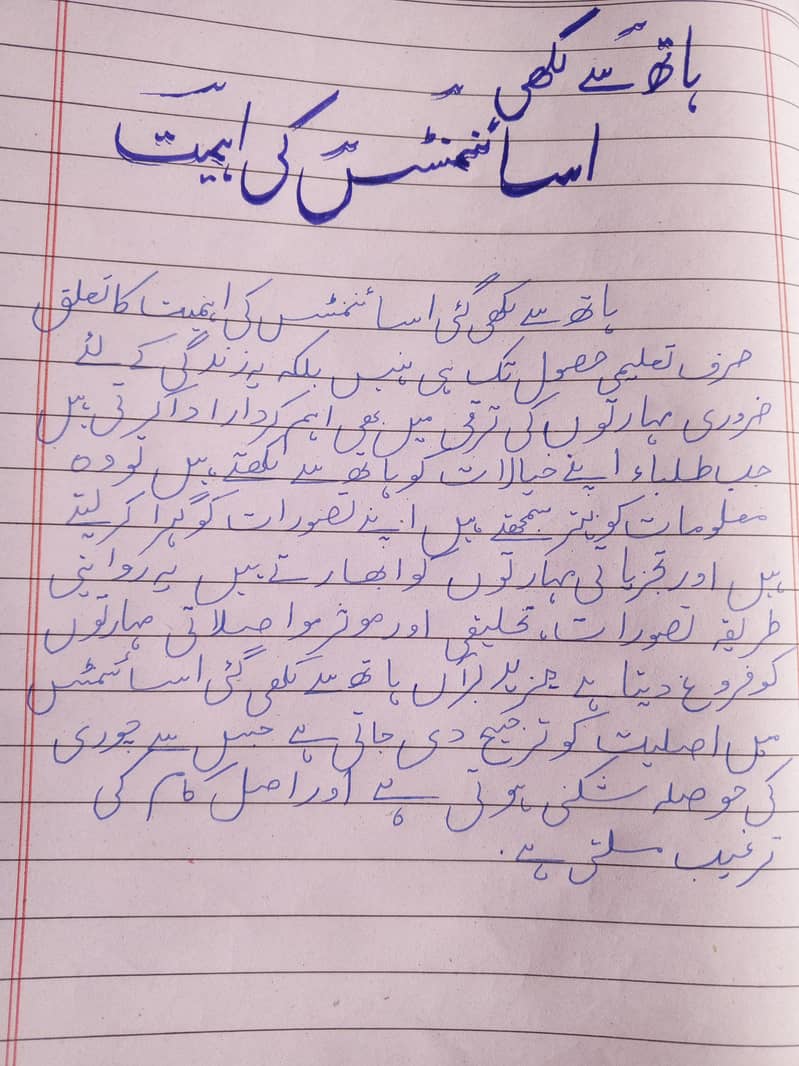 ہاتھ سے لکھی
اسائنمنٹس کی اہمیت
ہاتھ سے لکھی گئی اسائنمنٹس کی اہمیت کا تعلق
صرف تعلیمی حصول تک ہی نہیں بلکہ یہ زندگی کے لئے
ضروری مہارتوں کی ترقی میں بھی اہم کردار ادا کرتی ہیں
جب طلباء اپنے خیالات کو ہاتھ سے لکھتے ہیں تو وہ
معلومات کو بہتر سمجھتے ہیں اپنے تصورات کو گہرا کر لیتے
ہیں اور تجزیاتی مہارتوں کو ابھارتے ہیں یہ روایتی
طریقہ تصورات، تخلیقی اور موثر مواصلاتی مہارتوں
کو فروغ دیتا ہے مزید برآں ہاتھ سے لکھی گئی اسائنمنٹس
میں اصلیت کو ترجیح دی جاتی ہے جس سے چوری
کی حوصلہ شکنی ہوتی ہے اور اصل کام کی
ترغیب ملتی ہے.